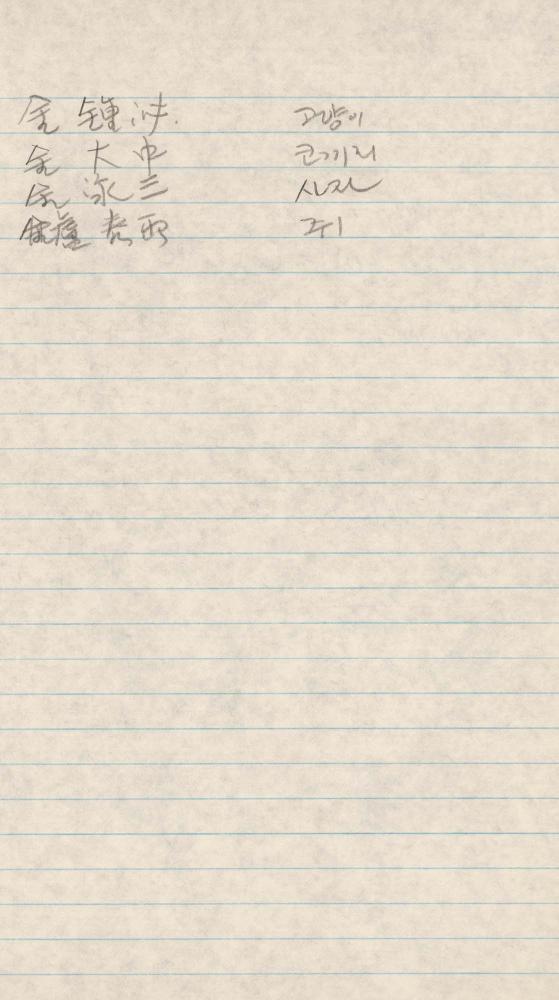 金 鍾泌. 고양이
金 大中 코끼리
金 泳三 사자
盧 泰 쥐